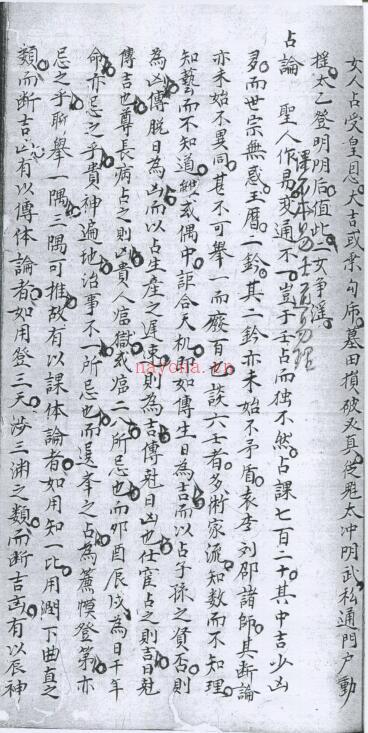 女人占受皇恩大吉或朱勾席墓田損破必真從魁太冲明武私通門户動
摇太乙登明明后值此二女争淫
占論 聖人作易変通不一豈于壬占而独不然占課七百二十其中吉少凶
多而世宗無惑玉曆二鈐其二鈐亦未始不矛盾袁李刘邵諸師其断論
亦未始不異同甚不可舉一而廢百也談六壬者多術家流知数而不知理
知藝而不知道或偶中詎合天机即如傳生日為吉而以占子孫之賢否則
為凶傳脱日為凶而以占生産之遅速則為吉傳尅日凶也仕宦占之則吉日尅
傳吉也尊長病占之則凶貴人临獄或临二八所忌也而卯酉辰戌為日干年
命亦忌之乎貴神遍地治事不一所忌也而遥奎之占為簾幙登第亦
忌之乎聊舉一隅三隅可推故有以課体論者如用知一比用潤下曲直之
類而断吉凶有以傳体論者如用登三天涉三渊之類而断吉凶有以辰神
nayona.cn